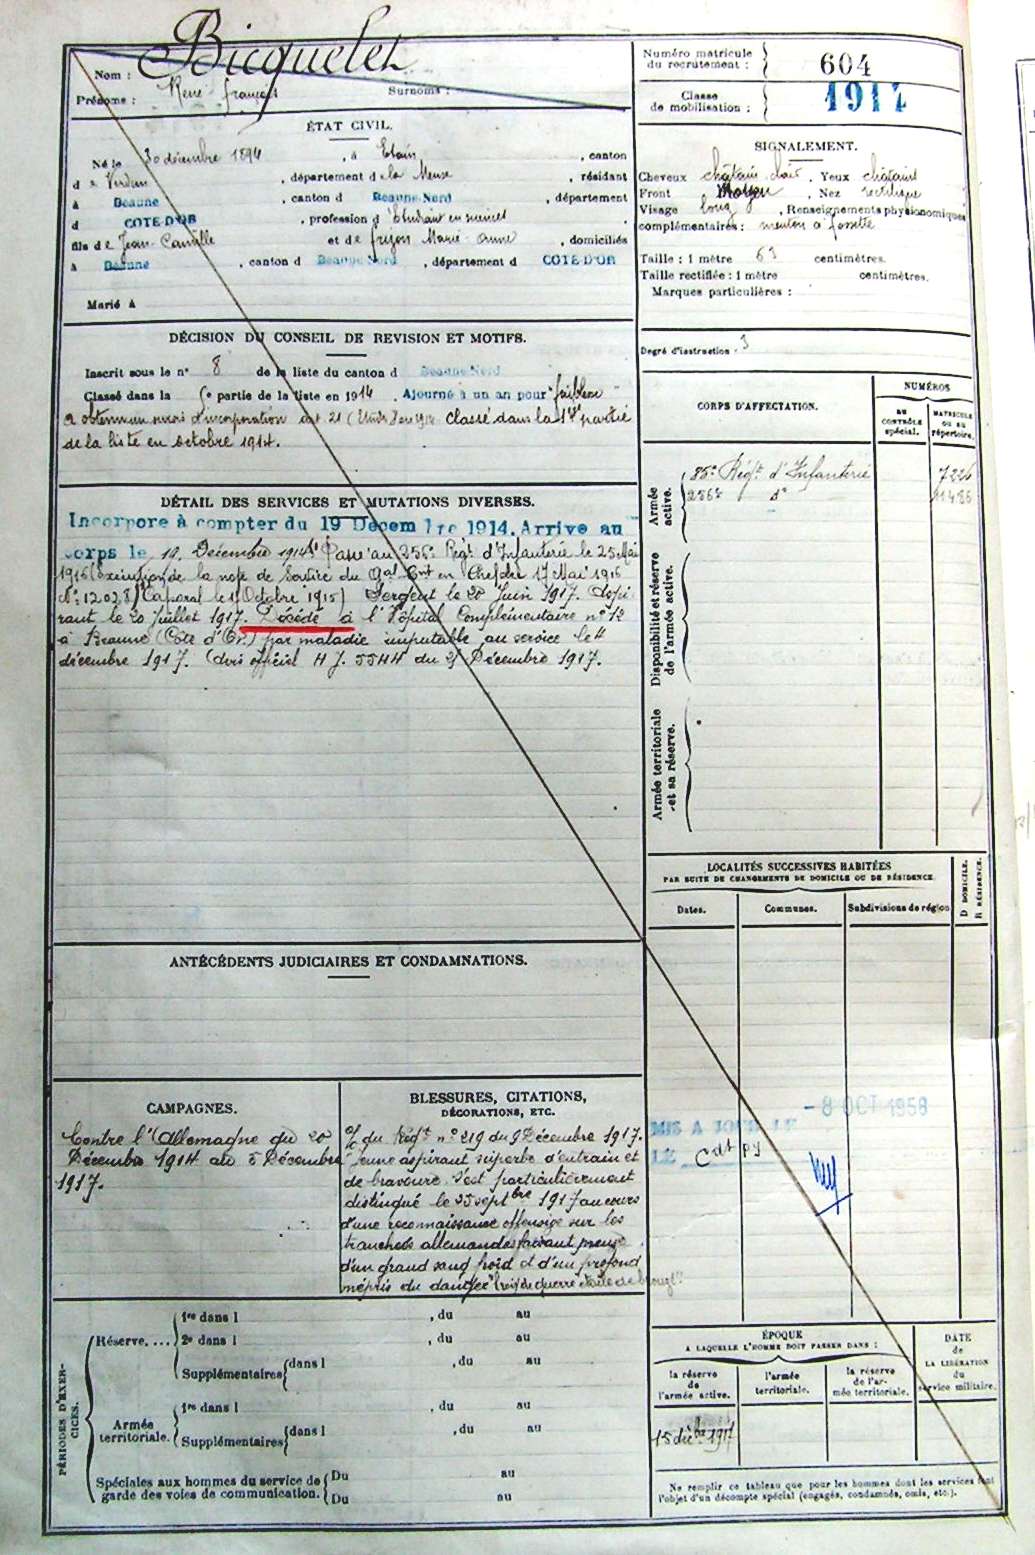 Nom : Bicquelet
Prénoms : René François Surnoms :
Numéro matricule du recrutement : 604
Classe de mobilisation : 1914
ÉTAT CIVIL.
Né le 30 décembre 1894, à Etain, canton
de Verdun, département de la Meuse, résidant
à Beaune, canton d Beaune-Nord, département
d COTE D'OR, profession d'étudiant en
fils de Jean-Camille et de Marie-Anne, domiciliés
à Beaune, canton d Beaune Nord, département d COTE D'OR
Marié à
SIGNALEMENT.
Cheveux châtain clair, Yeux châtains
Front Moyen, Nez rectiligne
Visage long, Renseignements physionomiques
complémentaires : menton à fossette
Taille : 1 mètre 63 centimètres.
Taille rectifiée : 1 mètre centimètres.
Marques particulières :
Degré d'instruction : 3
DÉCISION DU CONSEIL DE REVISION ET MOTIFS.
Inscrit sous le n° 8 de la liste du canton d Beaune-Nord
Classé dans la partie de la liste en 1914. Ajourné à un an pour "faiblesse"
a obtenu un sursis d'incorporation art. 21 Classé dans la 1ère partie
de la liste en octobre 1914.
DÉTAIL DES SERVICES ET MUTATIONS DIVERSES.
Incorporé à compter du 19 Décembre 1914. Arrivé au
corps le 19 Décembre 1914. Passé au 256e Régt d'Infanterie le 25 Mai
1916 (exécution de la note de service du Gal Cmt en Chef du 17 Mai 1916
N° 12028) Caporal le 1 Octobre 1915) Sergent le 28 Juin 1917. Aspi-
rant le 20 juillet 1917. Décédé à l'Hôpital Complémentaire n° 12
à Beaune (Côte d'Or) par maladie imputable au service le 4
décembre 1917. (avis officiel H J. 5544 du 31 Décembre 1917.
CORPS D'AFFECTATION.
NUMÉROS
AU CONTRÔLE spécial.
MATRICULE OU AU répertoire.
Armée active.
85e Régt d'Infanterie 7226
256e d° 11486
Disponibilité et réserve de l'armée active.
Armée territoriale et sa réserve.
LOCALITÉS SUCCESSIVES HABITÉES
PAR SUITE DE CHANGEMENTS DE DOMICILE OU DE RÉSIDENCE.
Dates. Communes. Subdivisions de région
D DOMICILE.
R RÉSIDENCE.
ANTÉCÉDENTS JUDICIAIRES ET CONDAMNATIONS.
CAMPAGNES.
Contre l'Allemagne du 20
Décembre 1914 au 5 Décembre
1917.
BLESSURES, CITATIONS,
DÉCORATIONS, ETC.
O/ du Régt n° 219 du 9 Décembre 1917.
"jeune aspirant superbe d'entrain et
de bravoure. S'est particulièrement
distingué le 25 septbre 1917 au cours
d'une reconnaissance offensive sur les
tranchées allemandes faisant preuve
d'un grand sang froid et d'un profond
mépris du danger" Croix de guerre étoile de bronze
- 8 OCT 1958
MIS A JOUR LE
LE
PÉRIODES D'EXERCICES.
Réserve....
1re dans l , du au
2e dans l , du au
Supplémentaires dans l , du au
Armée territoriale.
1re dans l , du au
Supplémentaires dans l , du au
Spéciales aux hommes du service de garde des voies de communication.
Du au
Du au
ÉPOQUE
A LAQUELLE L'HOMME DOIT PASSER DANS :
la réserve de l'armée active.
l'armée territoriale.
la réserve de l'armée territoriale.
DATE de LA LIBÉRATION du service militaire.
15 décbre 1917
Ne remplir ce tableau que pour les hommes dont les services sont
l'objet d'un décompte spécial (engagés, condamnés, omis, etc.).